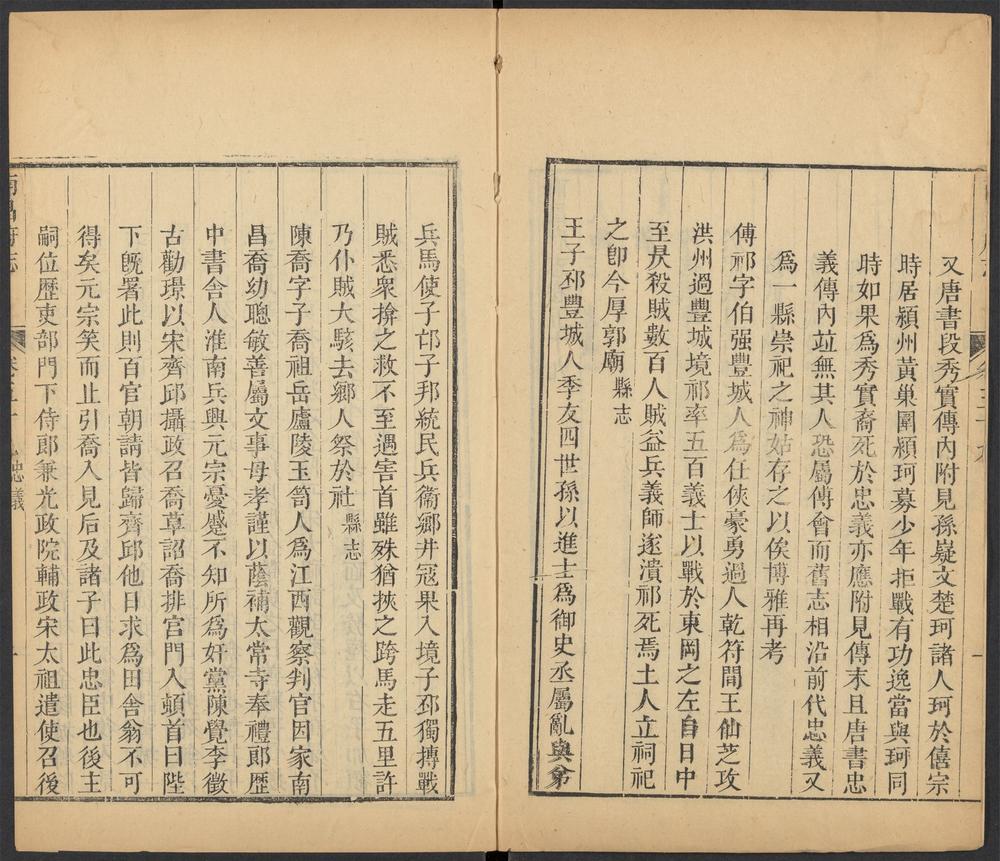 又唐書段秀實傳內附見孫嶷文楚珂諸人珂於僖宗
時居潁州黃巢圍潁珂募少年拒戰有功逸當與珂同
時如果爲秀實裔死於忠義亦應附見傳末且唐書忠
義傳內竝無其人恐屬傳會而舊志相沿前代忠義又
爲一縣崇祀之神姑存之以俟博雅再考
傅祁字伯强豐城人爲任俠豪勇過人乾符間王仙芝攻
洪州過豐城境祁率五百義士以戰於東岡之左自日中
至昃殺賊數百人賊益兵義師遂潰祁死焉土人立祠祀
之卽今厚郭廟縣志
王子邳豐城人季友四世孫以進士爲御史丞屬亂與弟
兵馬使子邙子邦統民兵衞鄉井冦果入境子邳獨摶戰
賊悉衆揜之救不至遇害首雖殊猶挾之跨馬走五里許
乃仆賊大駭去鄉人祭於社縣志
陳喬字子喬祖岳廬陵玉笥人爲江西觀察判官因家南
昌喬幼聰敏善屬文事母孝謹以蔭補太常寺奉禮郎歷
中書舍人淮南兵興元宗憂蹙不知所爲奸黨陳覺李徵
古勸璟以宋齊邱攝政召喬草詔喬排宮門入頓首曰陛
下旣署此則百官朝請皆歸齊邱他日求爲田舍翁不可
得矣元宗笑而止引喬入見后及諸子曰此忠臣也後主
嗣位歷吏部門下侍郎兼光政院輔政宋太祖遣使召後
南昌府志
忠義